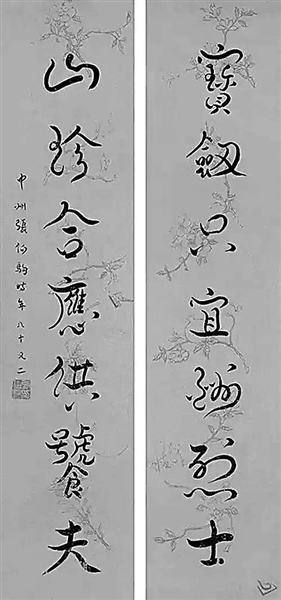 寶劍只宜烈士
山珍合應供饕夫
中州張伯駒時年八十又二